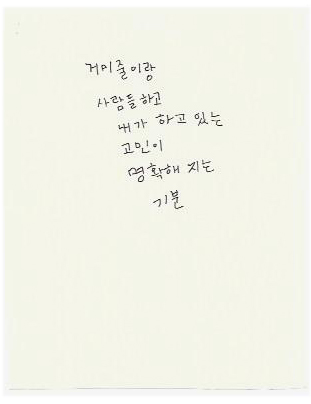 거미줄이랑
사람들하고
내가 하고 있는
고민이
명확해 지는
기분